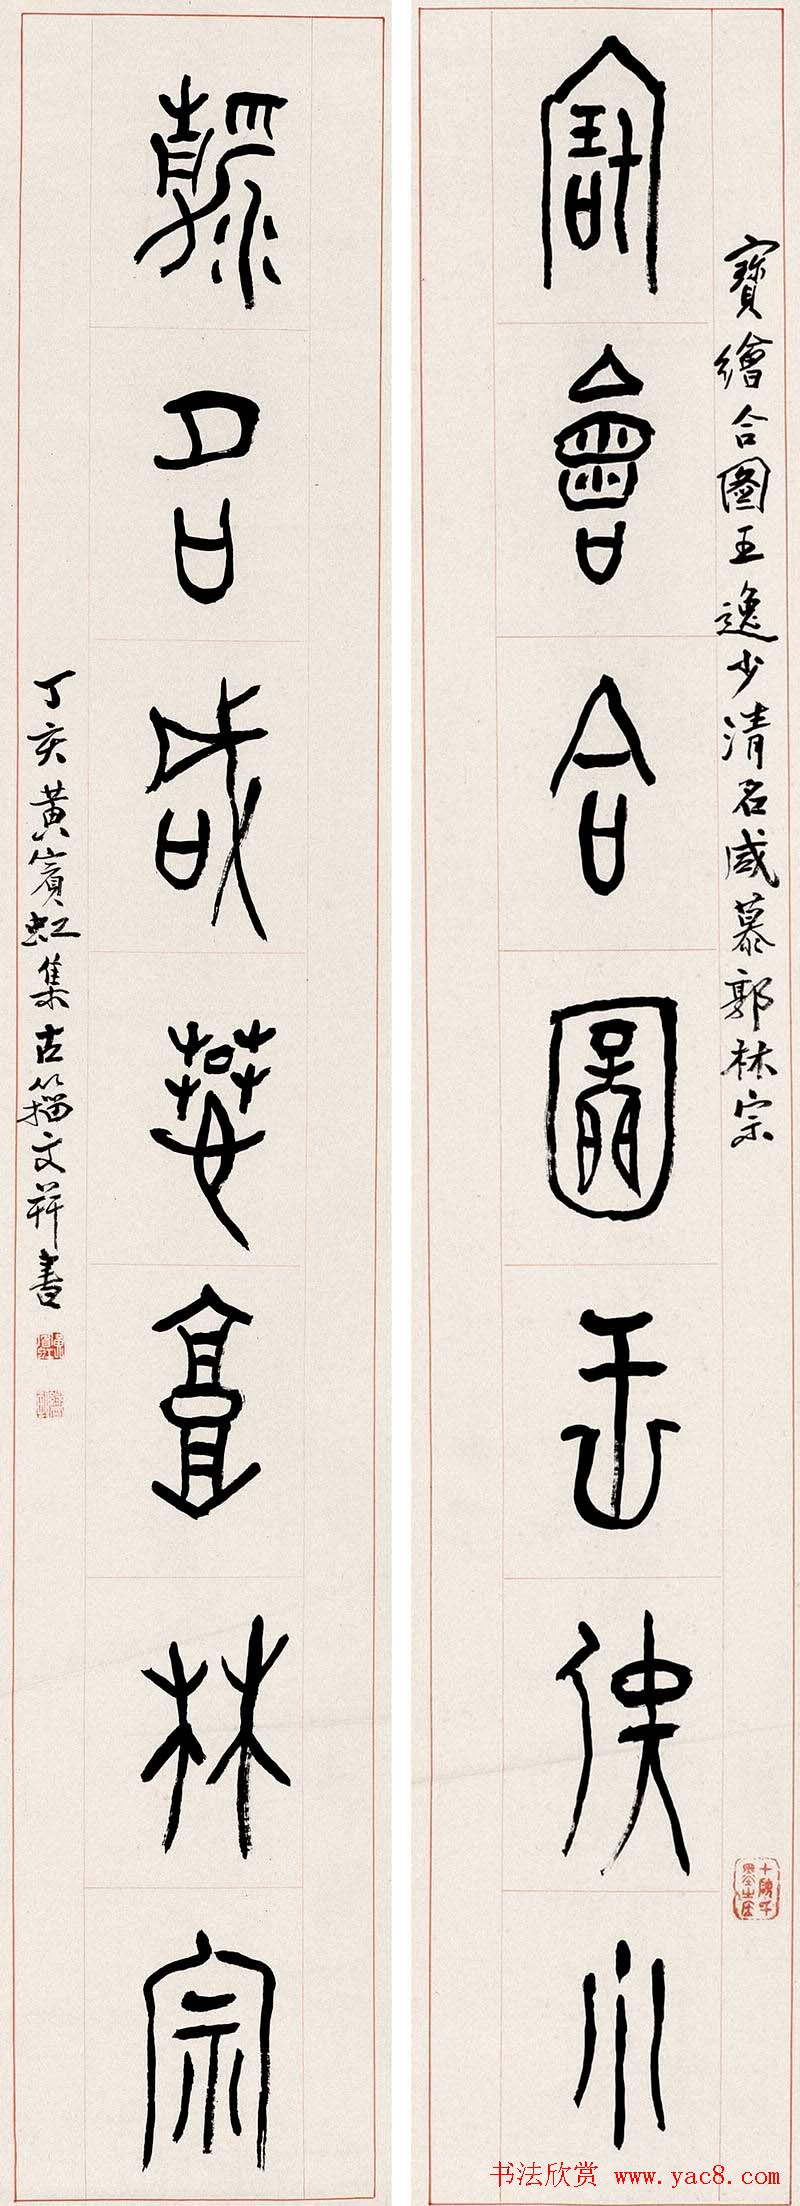 寶繪合圖王逸少清名咸慕郭林宗
寶繪合圖王逸少
清名咸慕郭林宗
丁亥黃賓虹集古籀文并書
书法欣赏 www.yac8.com